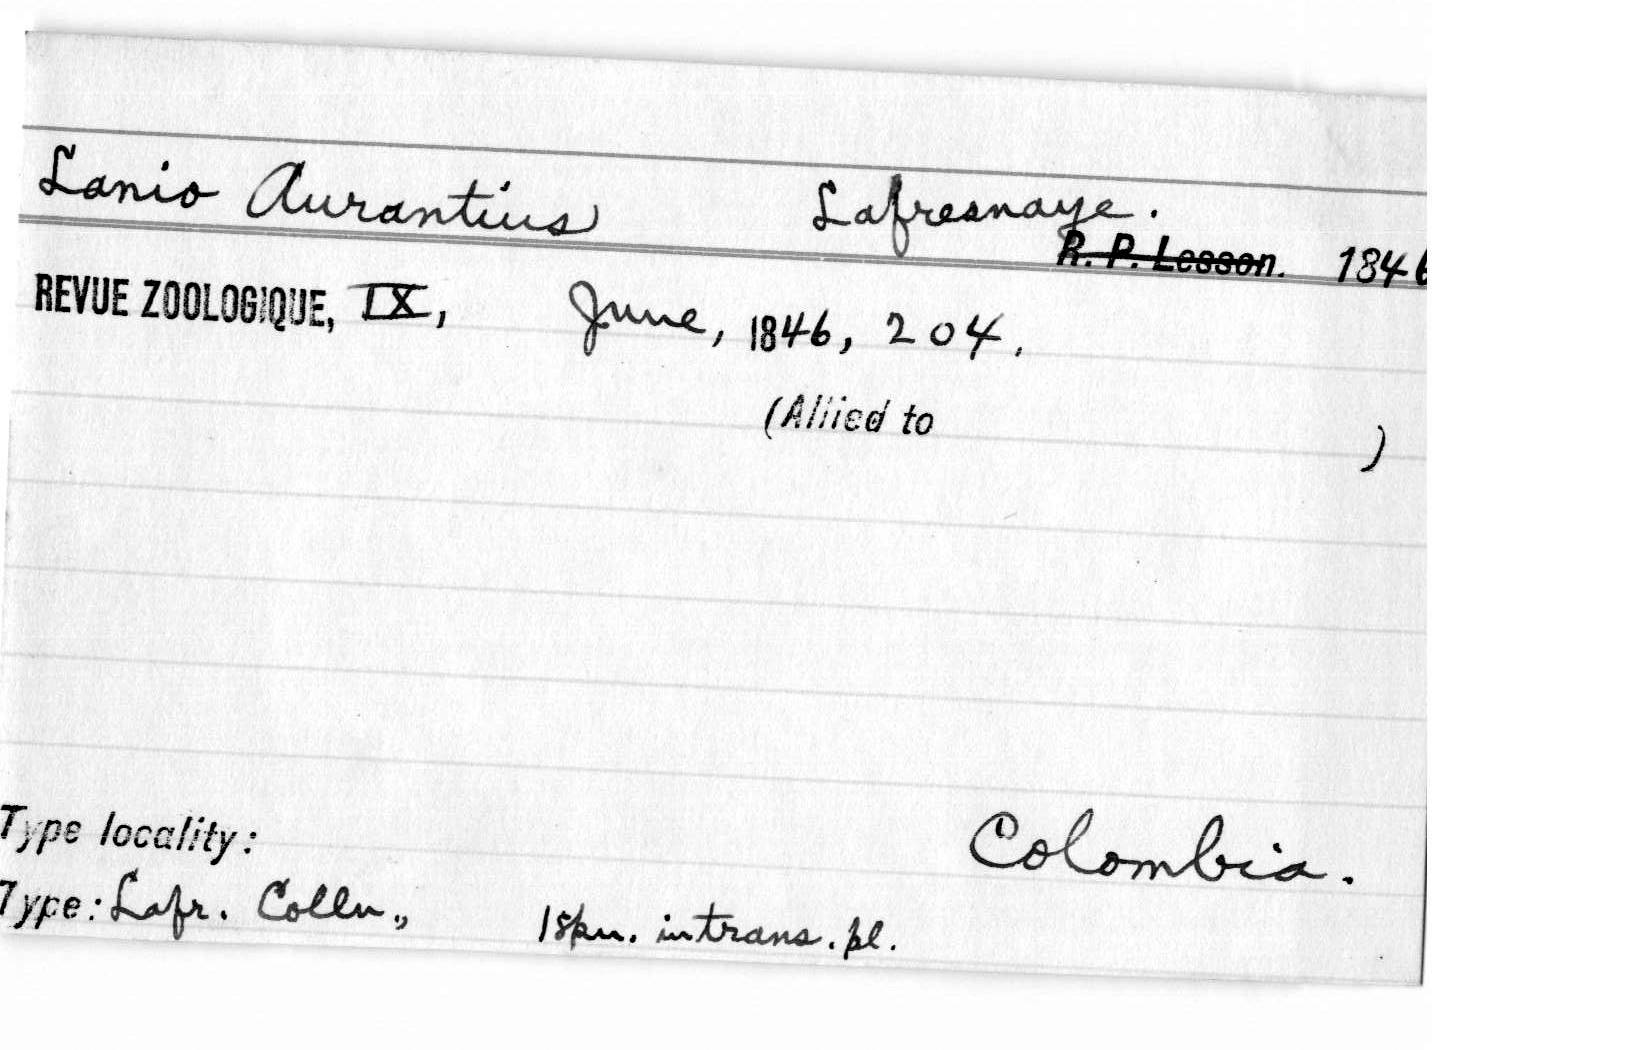 Lanio Aurantius Lafresnaye.
R. P. Lesson. 1846
REVUE ZOOLOGIQUE, IX, June, 1846, 204.
(Allied to )
Type locality: Colombia.
Type: Lafr. Colln., 1 spn. in trans. pl.